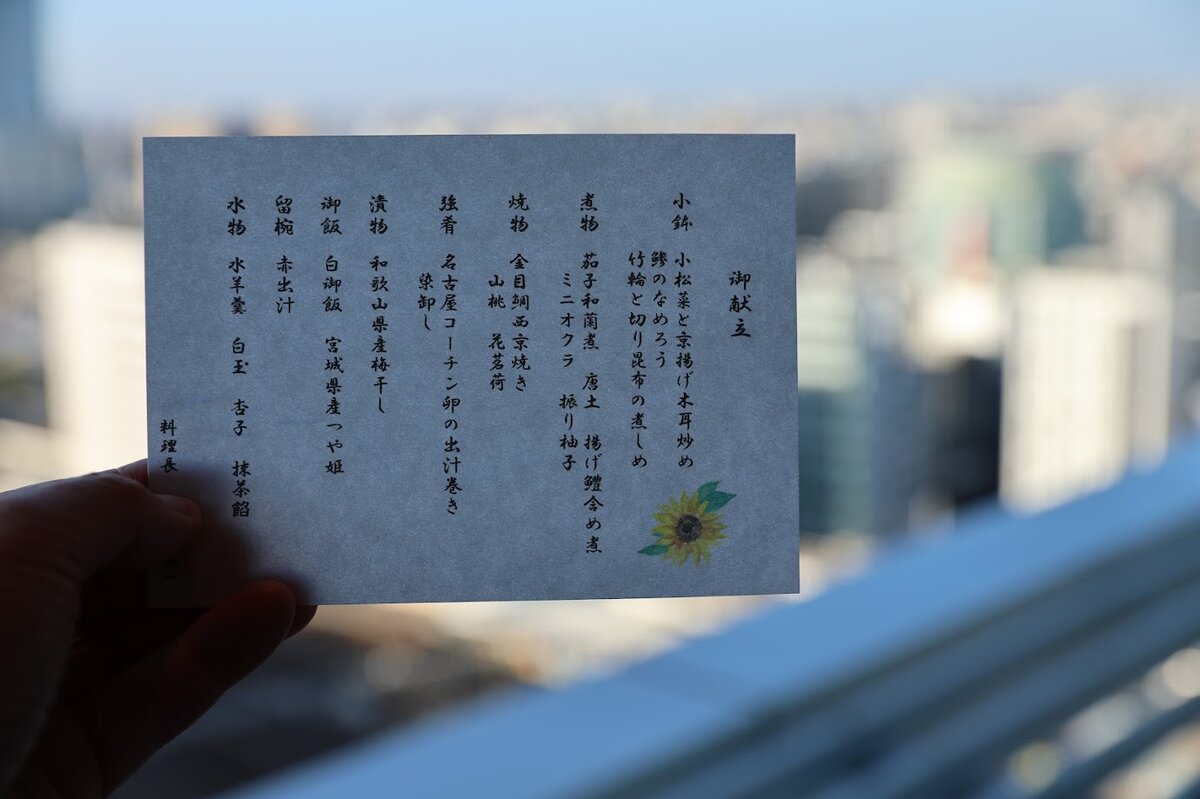 御献立
小鉢　小松菜と京揚げ木耳炒め
鯵のなめろう
竹輪と切り昆布の煮しめ
煮物　茄子和蘭煮　唐土　揚げ鱧含め煮
ミニオクラ　振り柚子
焼物　金目鯛西京焼き
山桃　花茗荷
強肴　名古屋コーチン卵の出汁巻き
染卸し
漬物　和歌山県産梅干し
御飯　白御飯　宮城県産つや姫
留椀　赤出汁
水物　水羊羹　白玉　杏子　抹茶餡
料理長